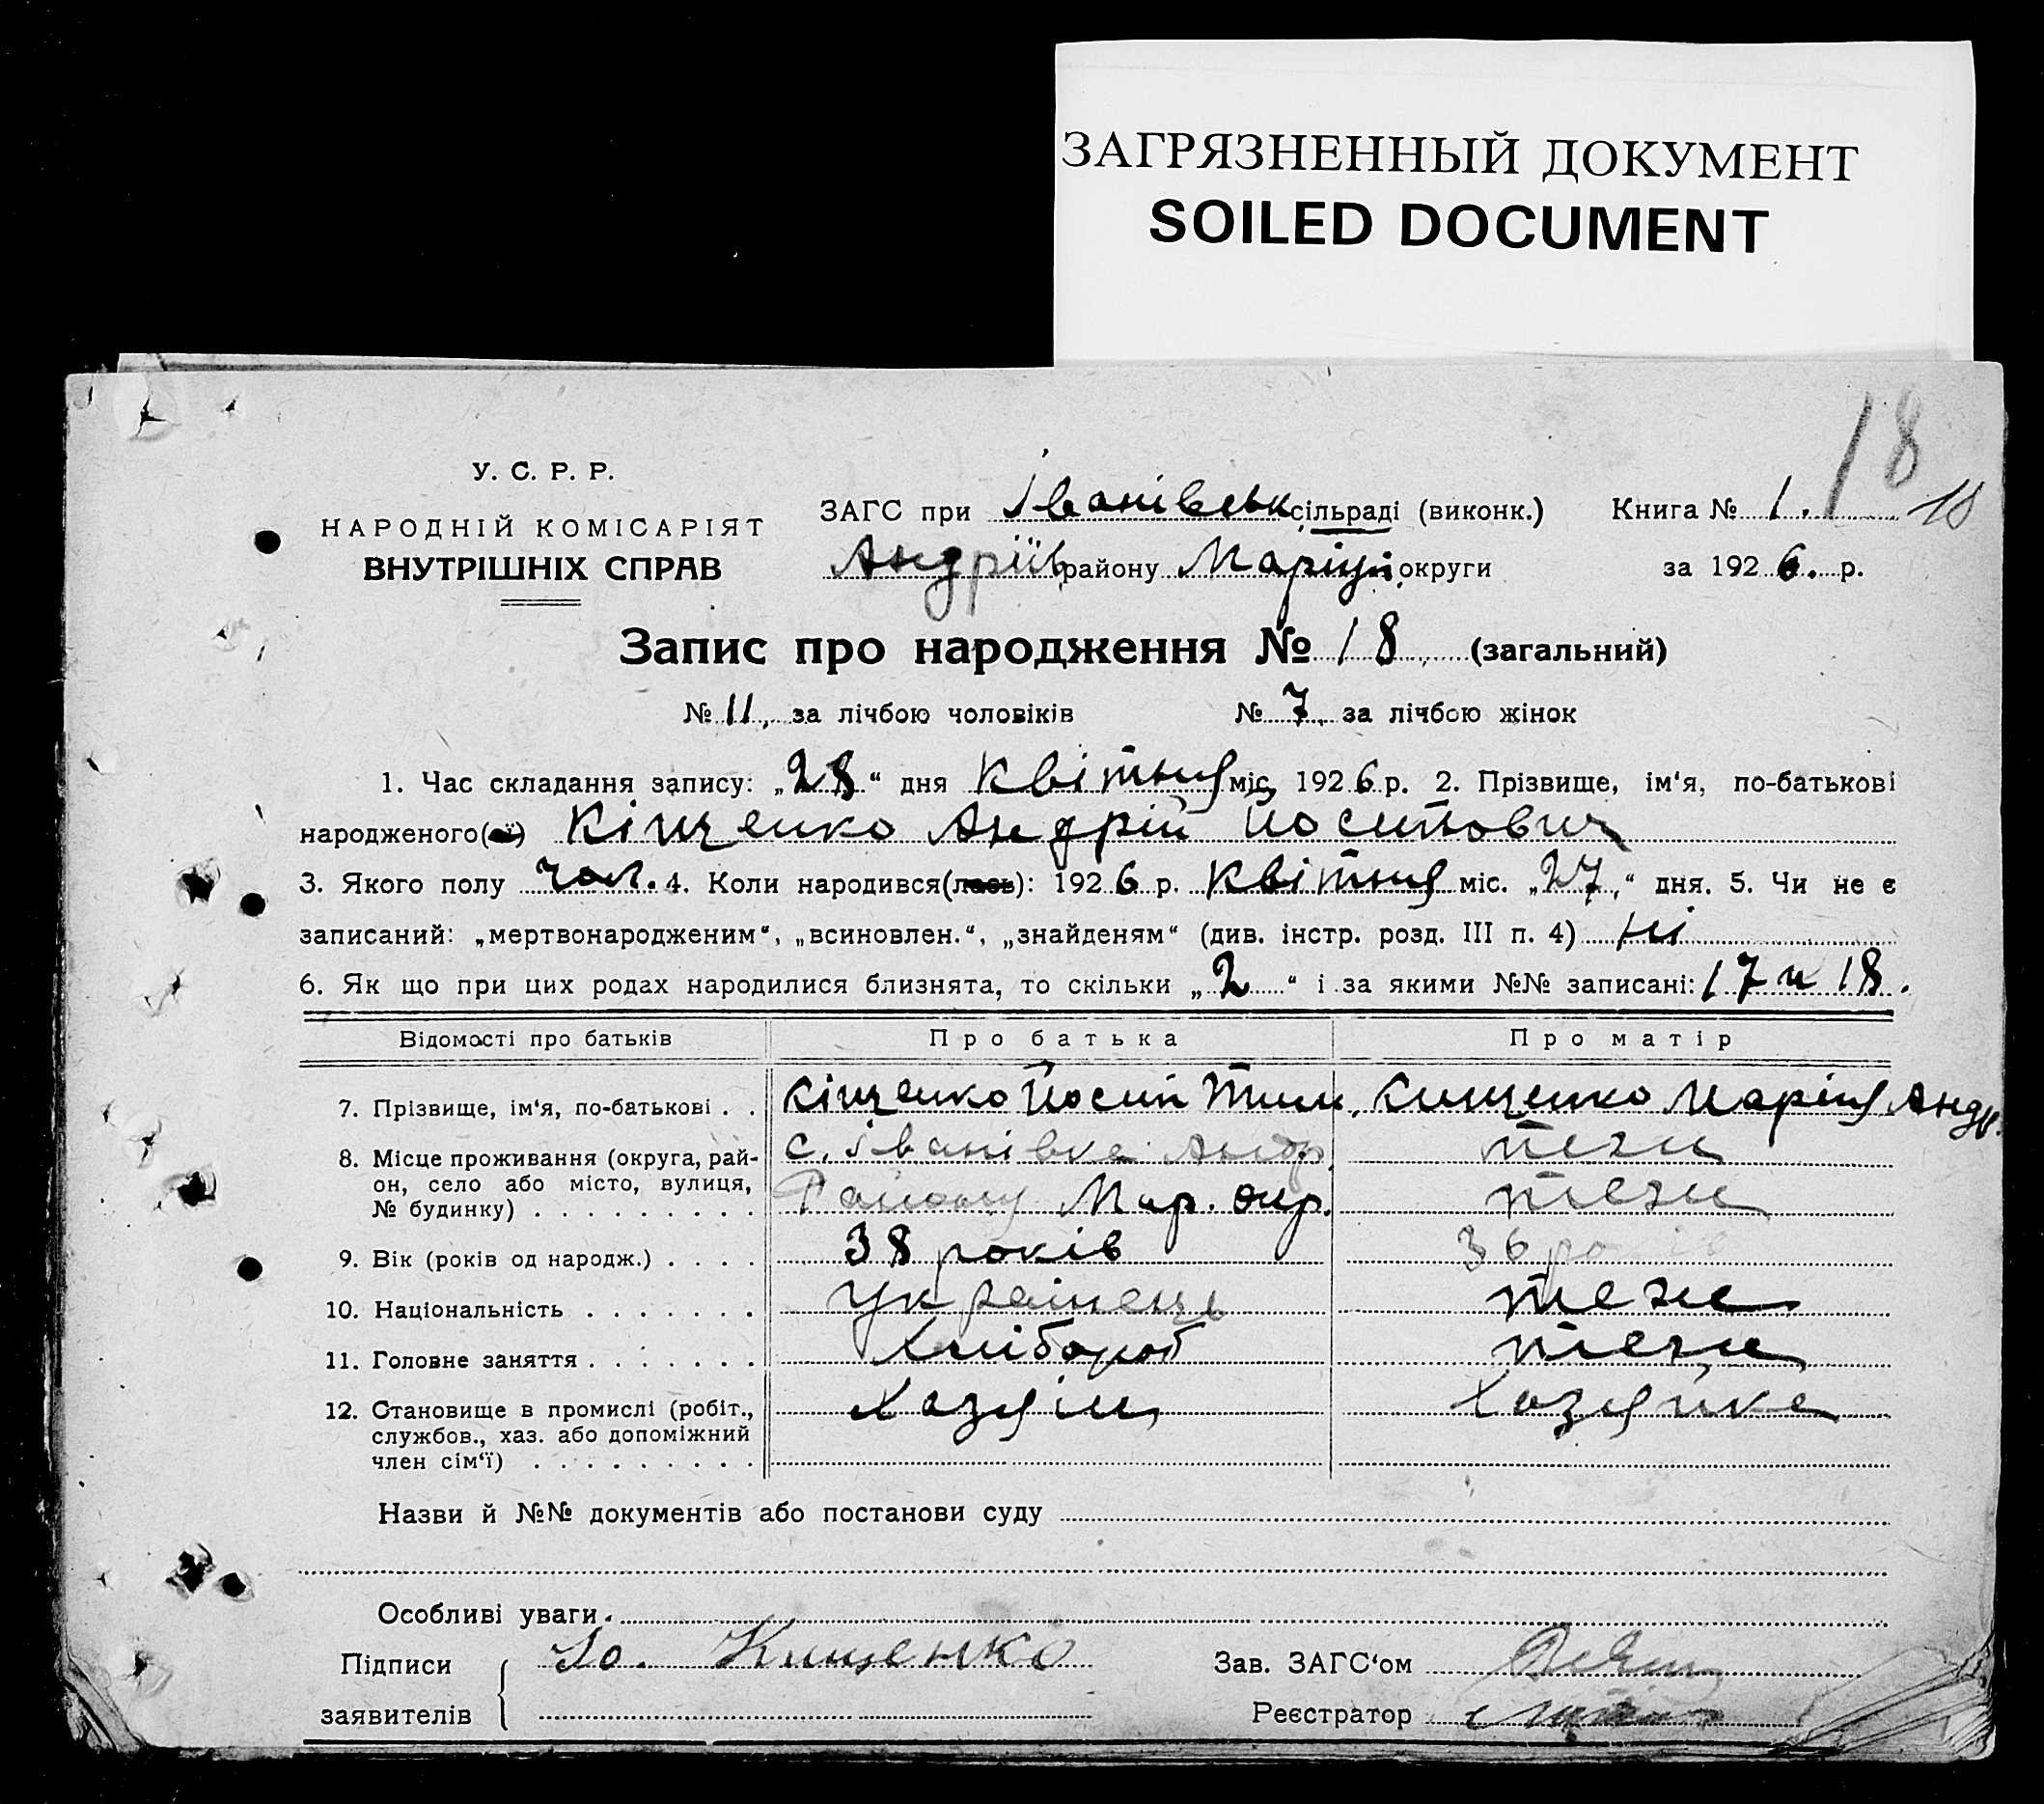 ЗАГРЯЗНЕННЫЙ ДОКУМЕНТ
SOILED DOCUMENT
18
У. С. Р. Р.
НАРОДНІЙ КОМІСАРІЯТ
ВНУТРІШНІХ СПРАВ
ЗАГС при Іванівськ сільраді (виконк.) Книга № 1. 18
Андріїв району Маріуп. округи за 1926. р.
Запис про народження № 18 (загальний)
№ 11, за лічбою чоловіків № 7, за лічбою жінок
1. Час складання запису: „28“ дня Квітня міс, 1926 р. 2. Прізвище, ім'я, по-батькові
народженого(ої) Кіщенко Андрій Йосипович
3. Якого полу чол. 4. Коли народився(лась): 1926 р. Квітня міс. „27,“ дня. 5. Чи не є
записаний: „мертвонародженим“, „всиновлен.“, „знайденям“ (див. інстр. розд. III п. 4) ні
6. Як що при цих родах народилися близнята, то скільки „2“ і за якими №№ записані: 17 и 18.
Відомості про батьків Про батька Про матір
7. Прізвище, ім'я, по-батькові . . Кіщенко Йосип Тим. Кищенко Марія Андр.
8. Місце проживання (округа, рай-он, село або місто, вулиця, № будинку) . . . . . . . . . с. Іванівка Андр. Району Мар. окр. теж теж
9. Вік (років од народж.) . . . . 38 років 36 років
10. Національність . . . . . . . Українець теж
11. Головне заняття . . . . . . . Хлібороб теж
12. Становище в промислі (робіт., службов., хаз. або допоміжний член сім'ї) . . . . . . . . . Хазяїн Хазяйка
Назви й №№ документів або постанови суду
Особливі уваги.
Підписи Ио. Кищенко Зав. ЗАГС'ом
заявителів Реєстратор